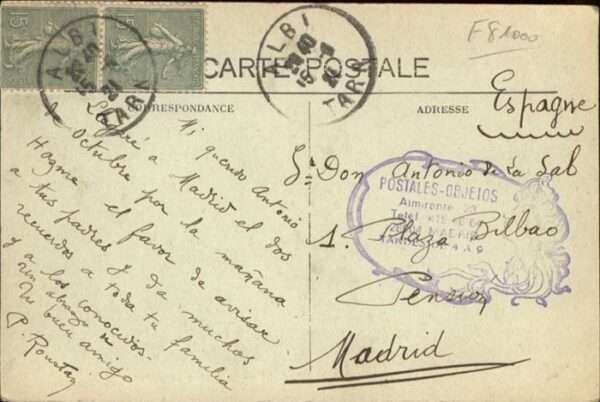 15
15
ALBI
TARN
ALBI
TARN
F81000
CARTE POSTALE
CORRESPONDANCE
ADRESSE
Espagne
Mi querido Antonio
Llegaré a Madrid el dos
de Octubre por la mañana
Hazme el favor de avisar
a tus padres y da muchos
recuerdos a toda tu familia
y a los conocidos.
un abrazo
Tu buen amigo
P. Roustan
Sr Don Antonio de la Sal
1. Plaza Bilbao
Pension
Madrid
POSTALES-OBJETOS
Almirante
Telef.
MADRID
TARDES DE 4 A 9